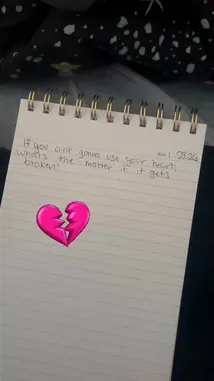 1/29/26
If you aint gonna use your heart,
whats the matter if it gets
broken?